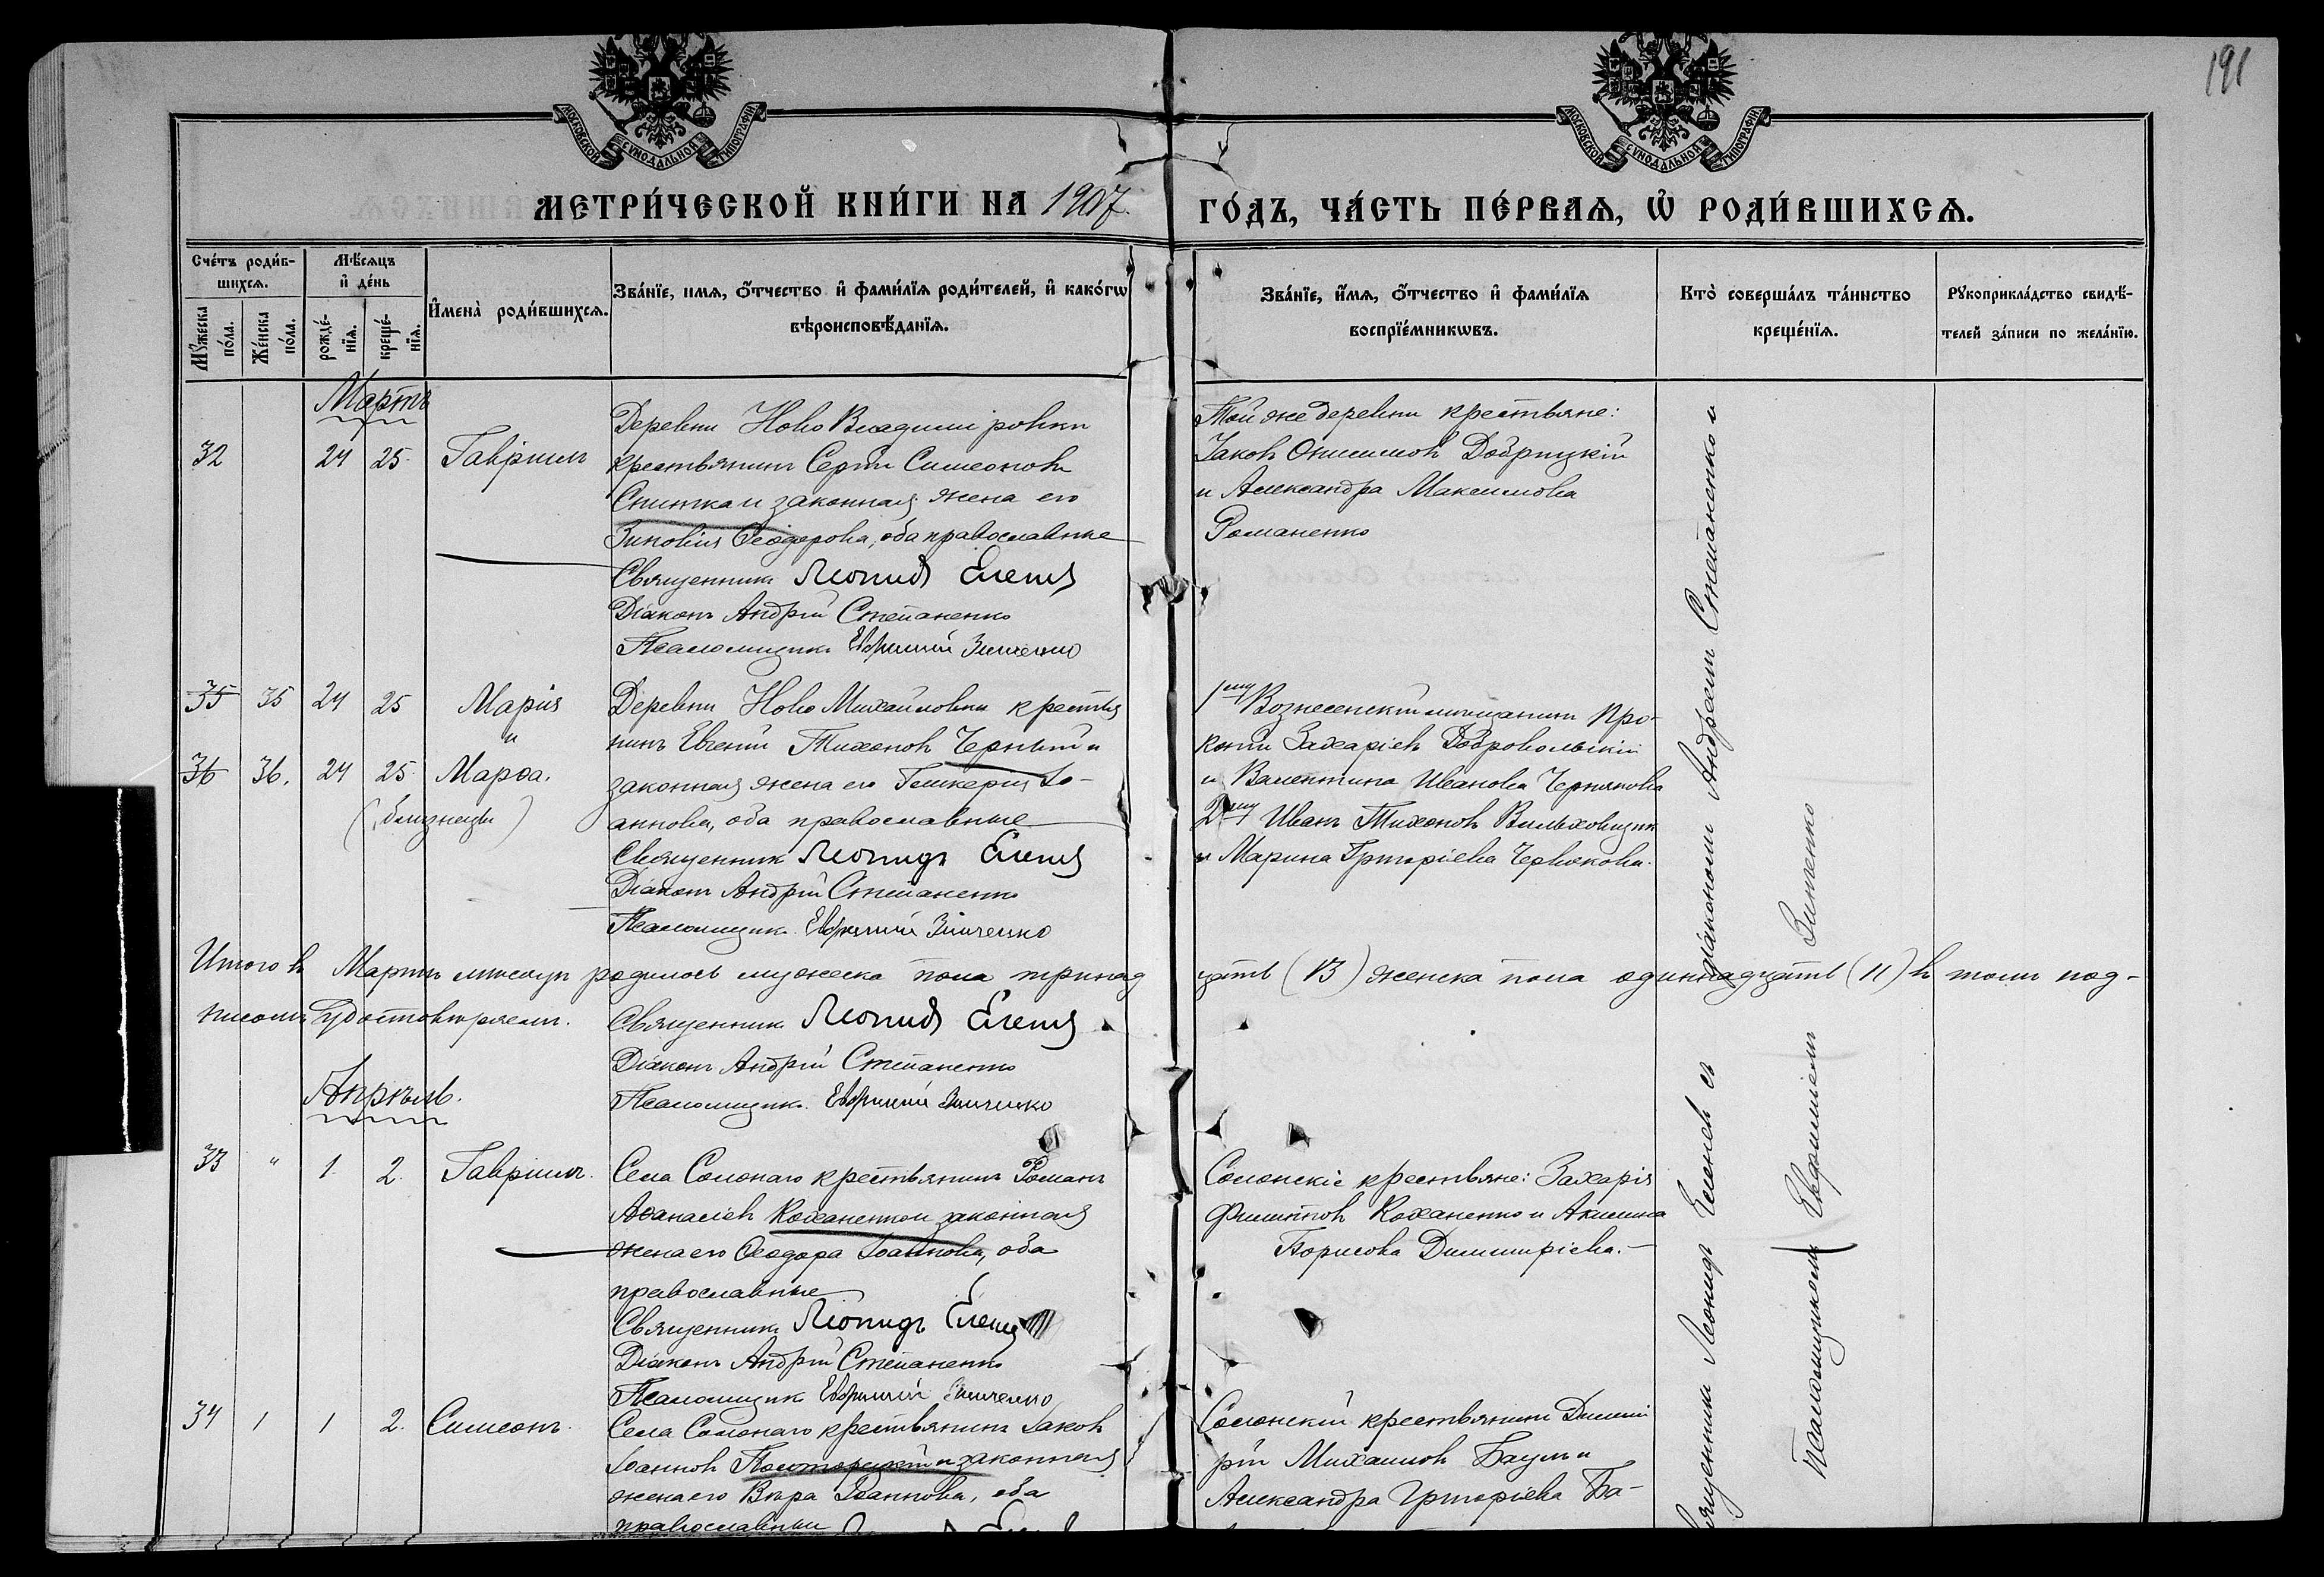 191
МОСКОВСКОЙ СѴНОДАЛЬНОЙ ТИПОГРАФІИ
МОСКОВСКОЙ СѴНОДАЛЬНОЙ ТИПОГРАФІИ
МЕТРИ́ЧЕСКОЙ КНИ́ГИ НА 1907 ГО́ДЪ, ЧА́СТЬ ПЕ́РВАѦ, Ѡ РОДИ́ВШИХСѦ.
Сче́тъ роди́в-
шихсѧ.
Мꙋ́жеска
по́ла.
Же́нска
по́ла.
Мѣ́сѧцъ
и҆ де́нь
рожде́-
нїѧ.
креще́-
нїѧ.
И҆мена̀ роди́вшихсѧ.
Зва́нїе, имѧ, ѻ҆́тчество и҆ фами́лїѧ роди́телей, и҆ како́гѡ
вѣроисповѣ́данїѧ.
Зва́нїе, и҆́мѧ, ѻ҆́тчество и҆ фами́лїѧ
воспрїе́мникѡвъ.
Кто̀ соверша́лъ та́инство
креще́нїѧ.
Рꙋкоприкла́дство свидѣ́-
телей за́писи по жела́нїю.
Мартъ
32 24 25. Гавріилъ
Деревни Ново Владиміровки
крестьянинъ Сергій Симеоновъ
Спитка и законная жена его
Зиновія Ѳеодорова, оба православные
Священникъ Леонидъ Еленевъ
Діаконъ Андрей Степаненко
Псаломщикъ Евфимій Зинченко
Той же деревни крестьяне:
Іаковъ Онисимовъ Добрицкій
и Александра Максимова
Романенко
35 35 24 25 Марія
и
36 36. 24 25. Марѳа.
(близнецы)
Деревни Ново Михайловки крестья
нинъ Евгеній Тихоновъ Черный и
законная жена его Гликерія Іо-
аннова, оба православные
Священникъ Леонидъ Еленевъ
Діаконъ Андрей Степаненко
Псаломщикъ Евфимій Зинченко
1му Вознесенскій мещанинъ Про-
копій Захаріевъ Добровольскій
и Валентина Иванова Чернякова
2му Иванъ Тихоновъ
и Марина Григоріева Червякова.
Итого въ Мартѣ мѣсяцѣ родилось мужеска пола тринад
цать (13) женска пола одиннадцать (11) въ томъ под-
писомъ удостовѣряемъ.
Священникъ Леонидъ Еленевъ
Діаконъ Андрей Степаненко
Псаломщикъ Евфимій Зинченко
Апрѣль.
33 " 1. 2. Гавріилъ.
Села Солонаго крестьянинъ Романъ
Аѳанасіевъ Коханенко и законная
жена его Ѳеодора Іоаннова, оба
православные
Священникъ Леонидъ Еленевъ
Діаконъ Андрей Степаненко
Псаломщикъ Евфимій Зинченко
Солонскіе крестьяне: Захарія
Филипповъ Коханенко и Акилина
Борисова Димитріева.
34 1 1 2. Симеонъ.
Села Солонаго крестьянинъ Іаковъ
Іоанновъ Полторацкій и законная
жена его Вѣра Іоаннова, оба
православные
Солонскій крестьянинъ Дими
рій Михаиловъ Баулъ и
Александра Григоріева Ба-
Священникъ Леонидъ Еленевъ съ діакономъ Андреемъ Степаненко и
Псаломщикомъ Евфиміемъ Зинченко